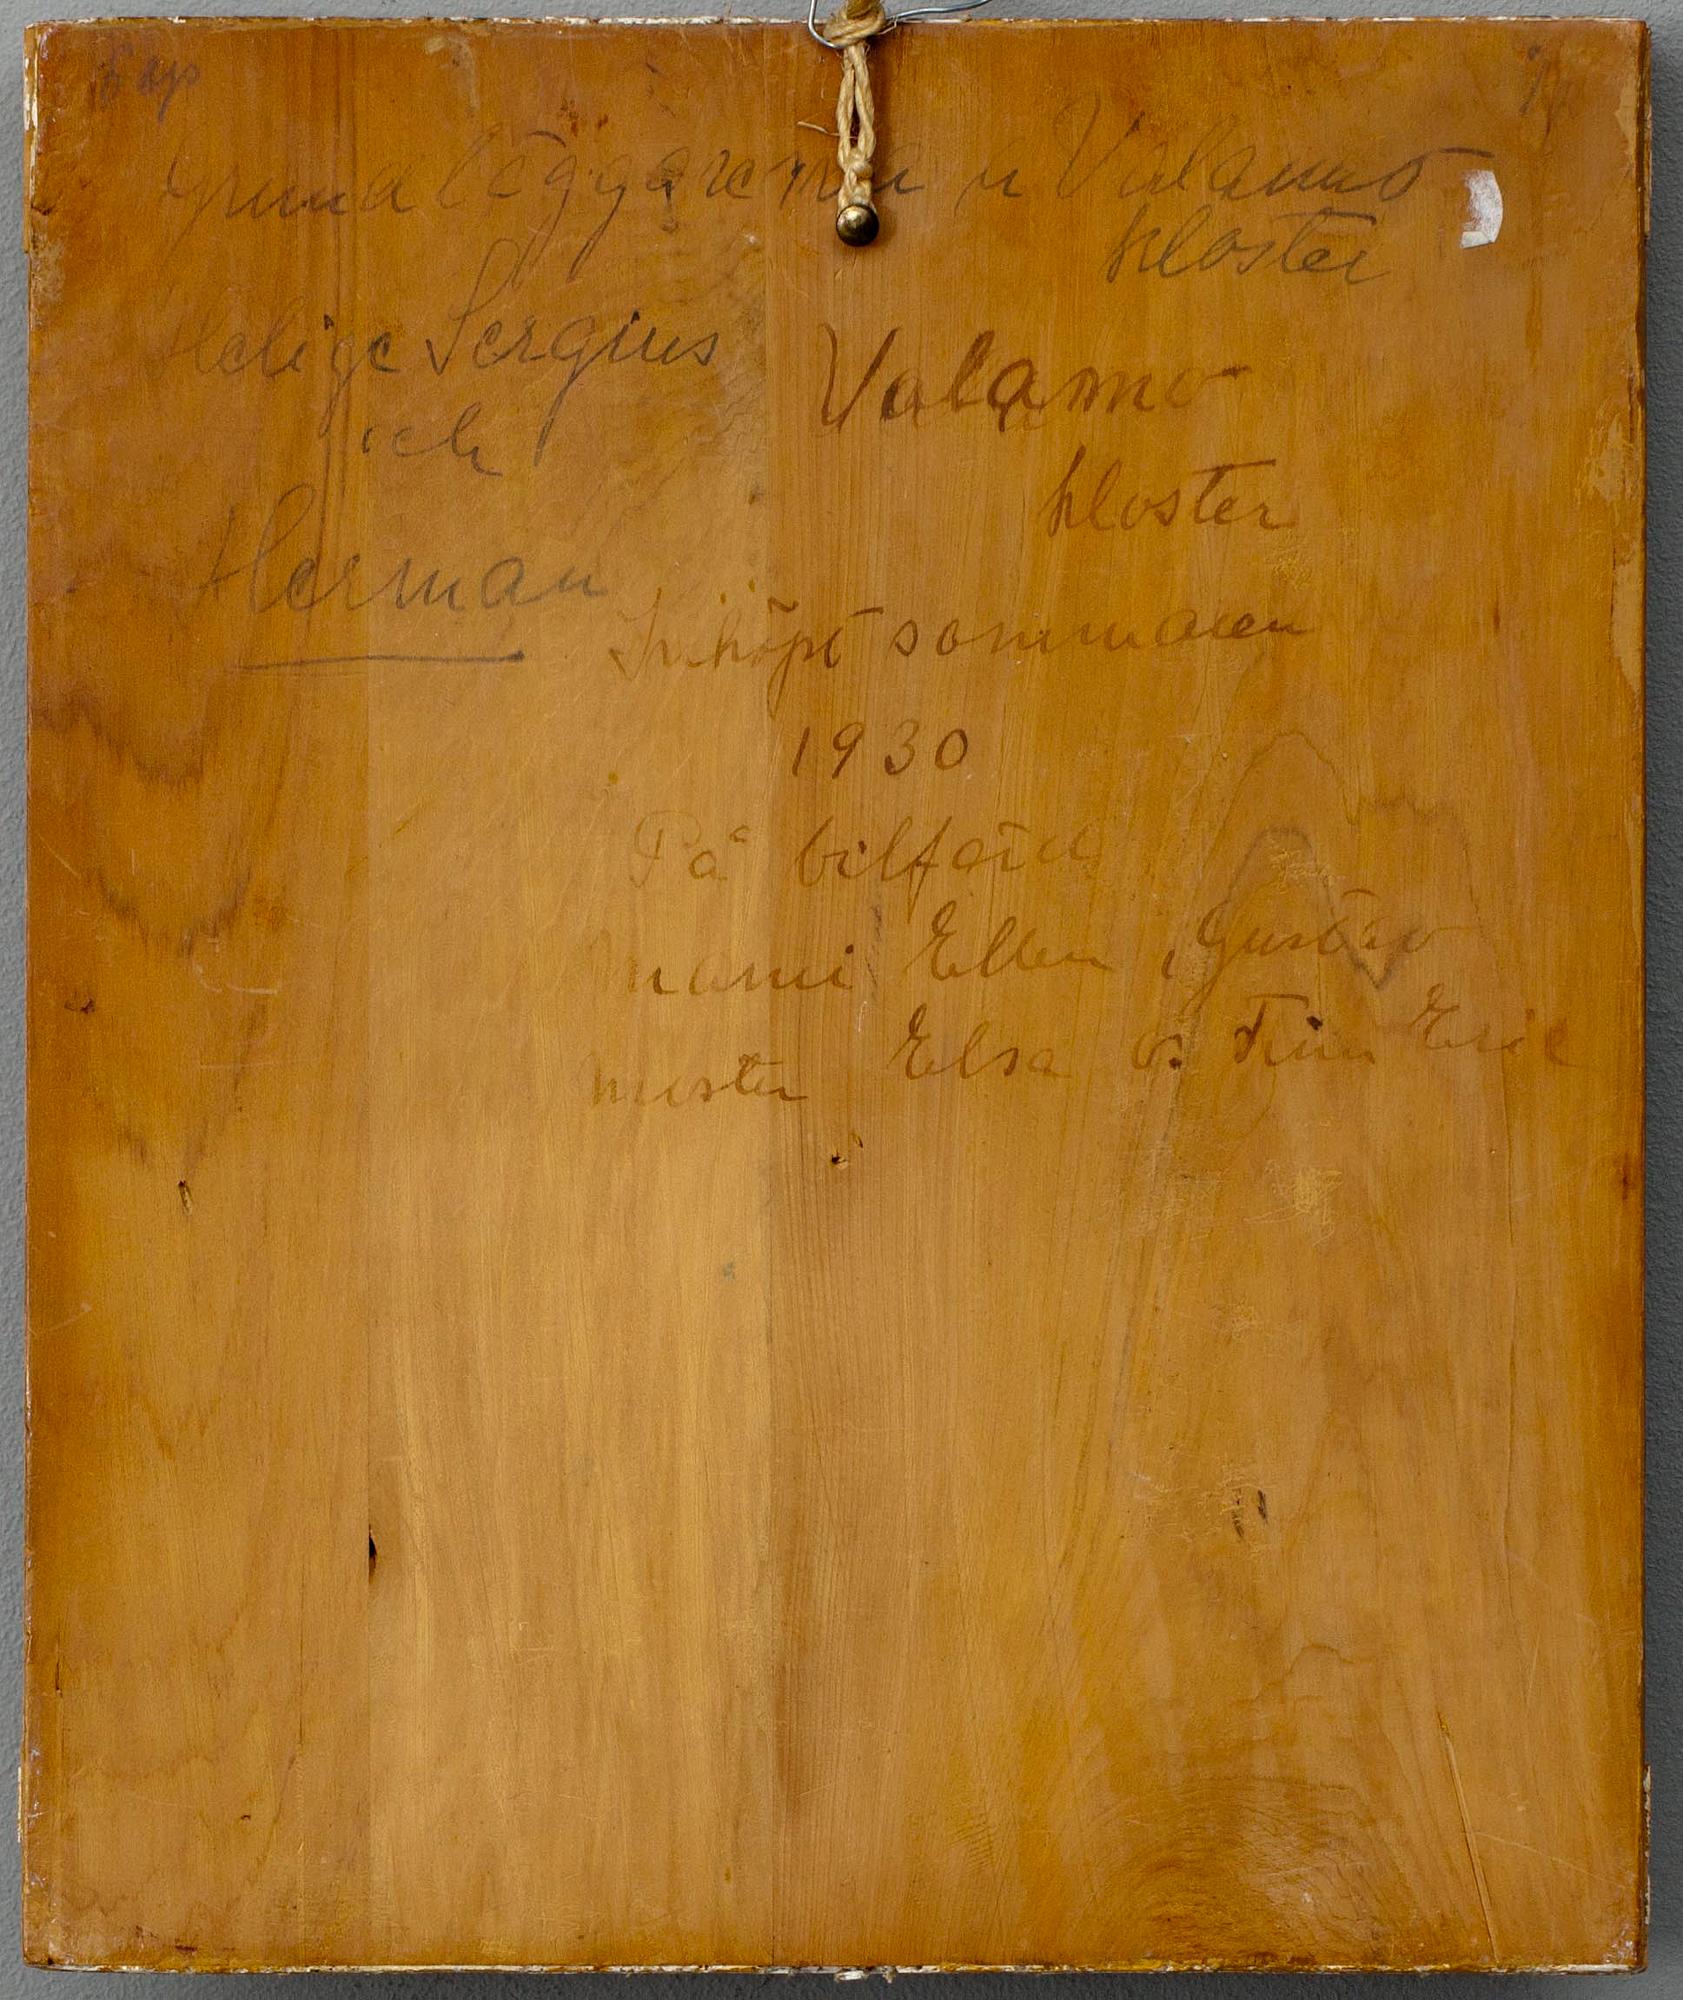 Grundläggarena a Valamo
kloster
Helige Sergius
och
Herman
Valamo
kloster
Inköpt sommaren
1930
På bilfärd
Ellen, Gustav
Elsa o. Finn Eric